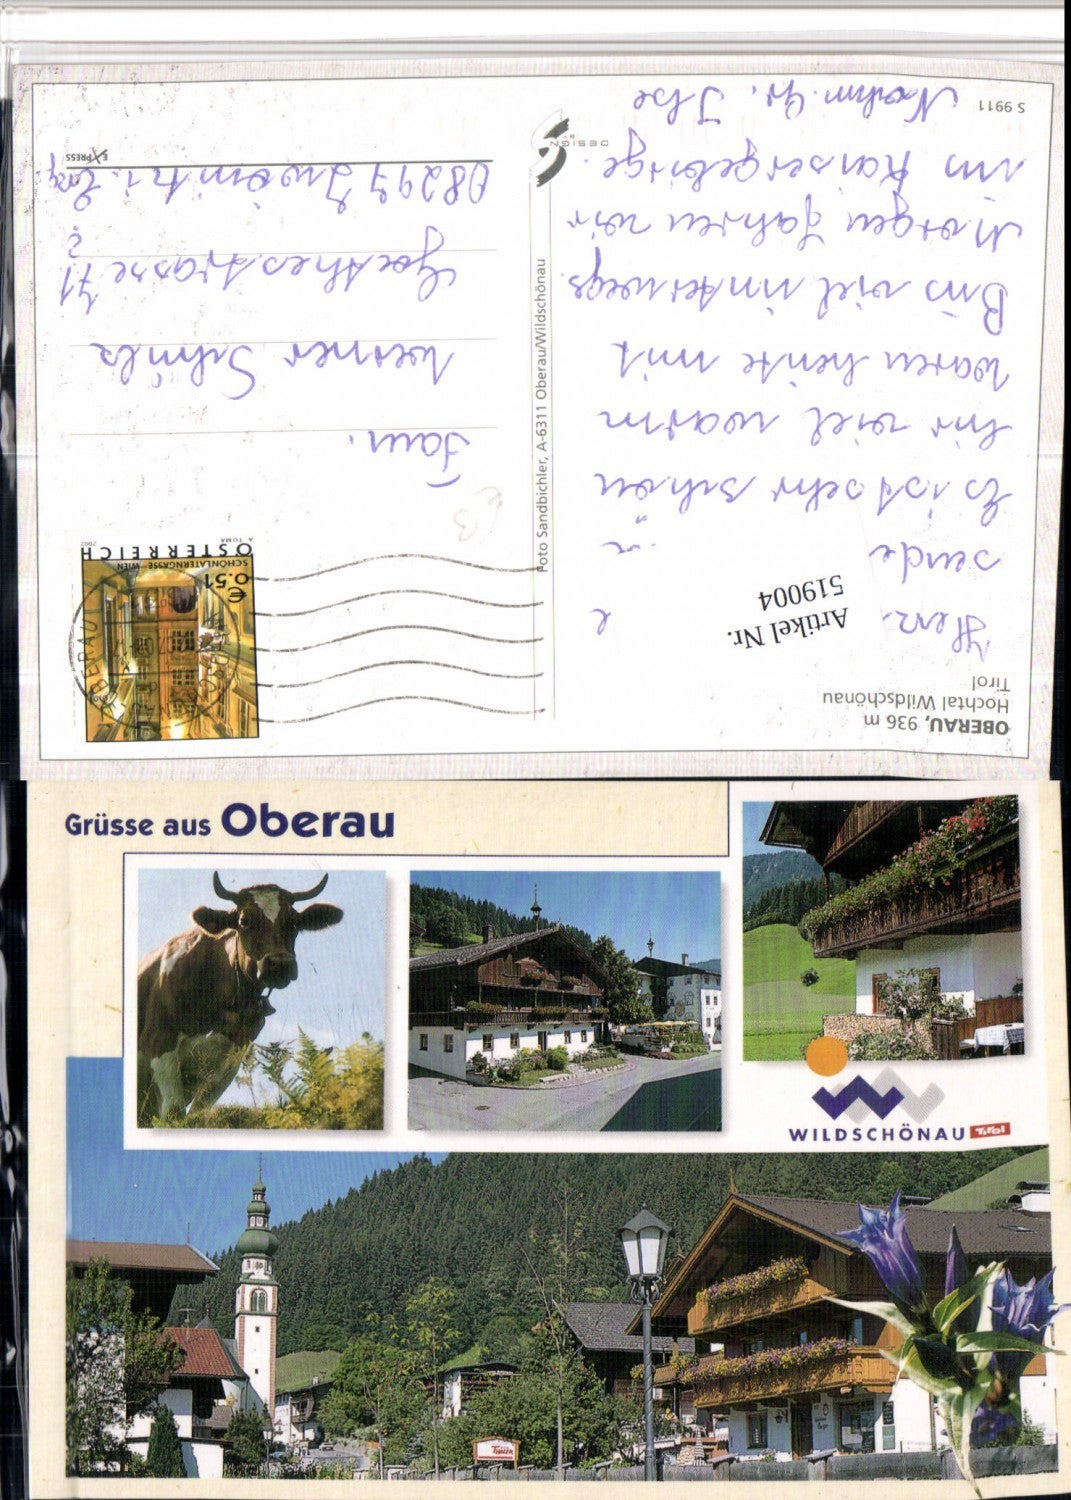 OBERAU, 936 m
Hochtal Wildschönau
Tirol
Artikel Nr.
519004
sende
Es ist sehr schön
hir viel warm
waren heute mit
Bus viel unterwegs.
Morgen fahren wir
ins Kaisergebirge.
S 9911
Foto Sandbichler, A-6311 Oberau/Wildschönau
DESIGN
BY
€ 0.51
SCHÖNLATERNGASSE WIEN
ÖSTERREICH
A. TUMA
2002
OBERAU
Fam.
Werner Schulz
Goethestrasse 71
08297 Zwönitz i. Erzg.
EXPRESS
Grüsse aus Oberau
WILDSCHÖNAU Tirol